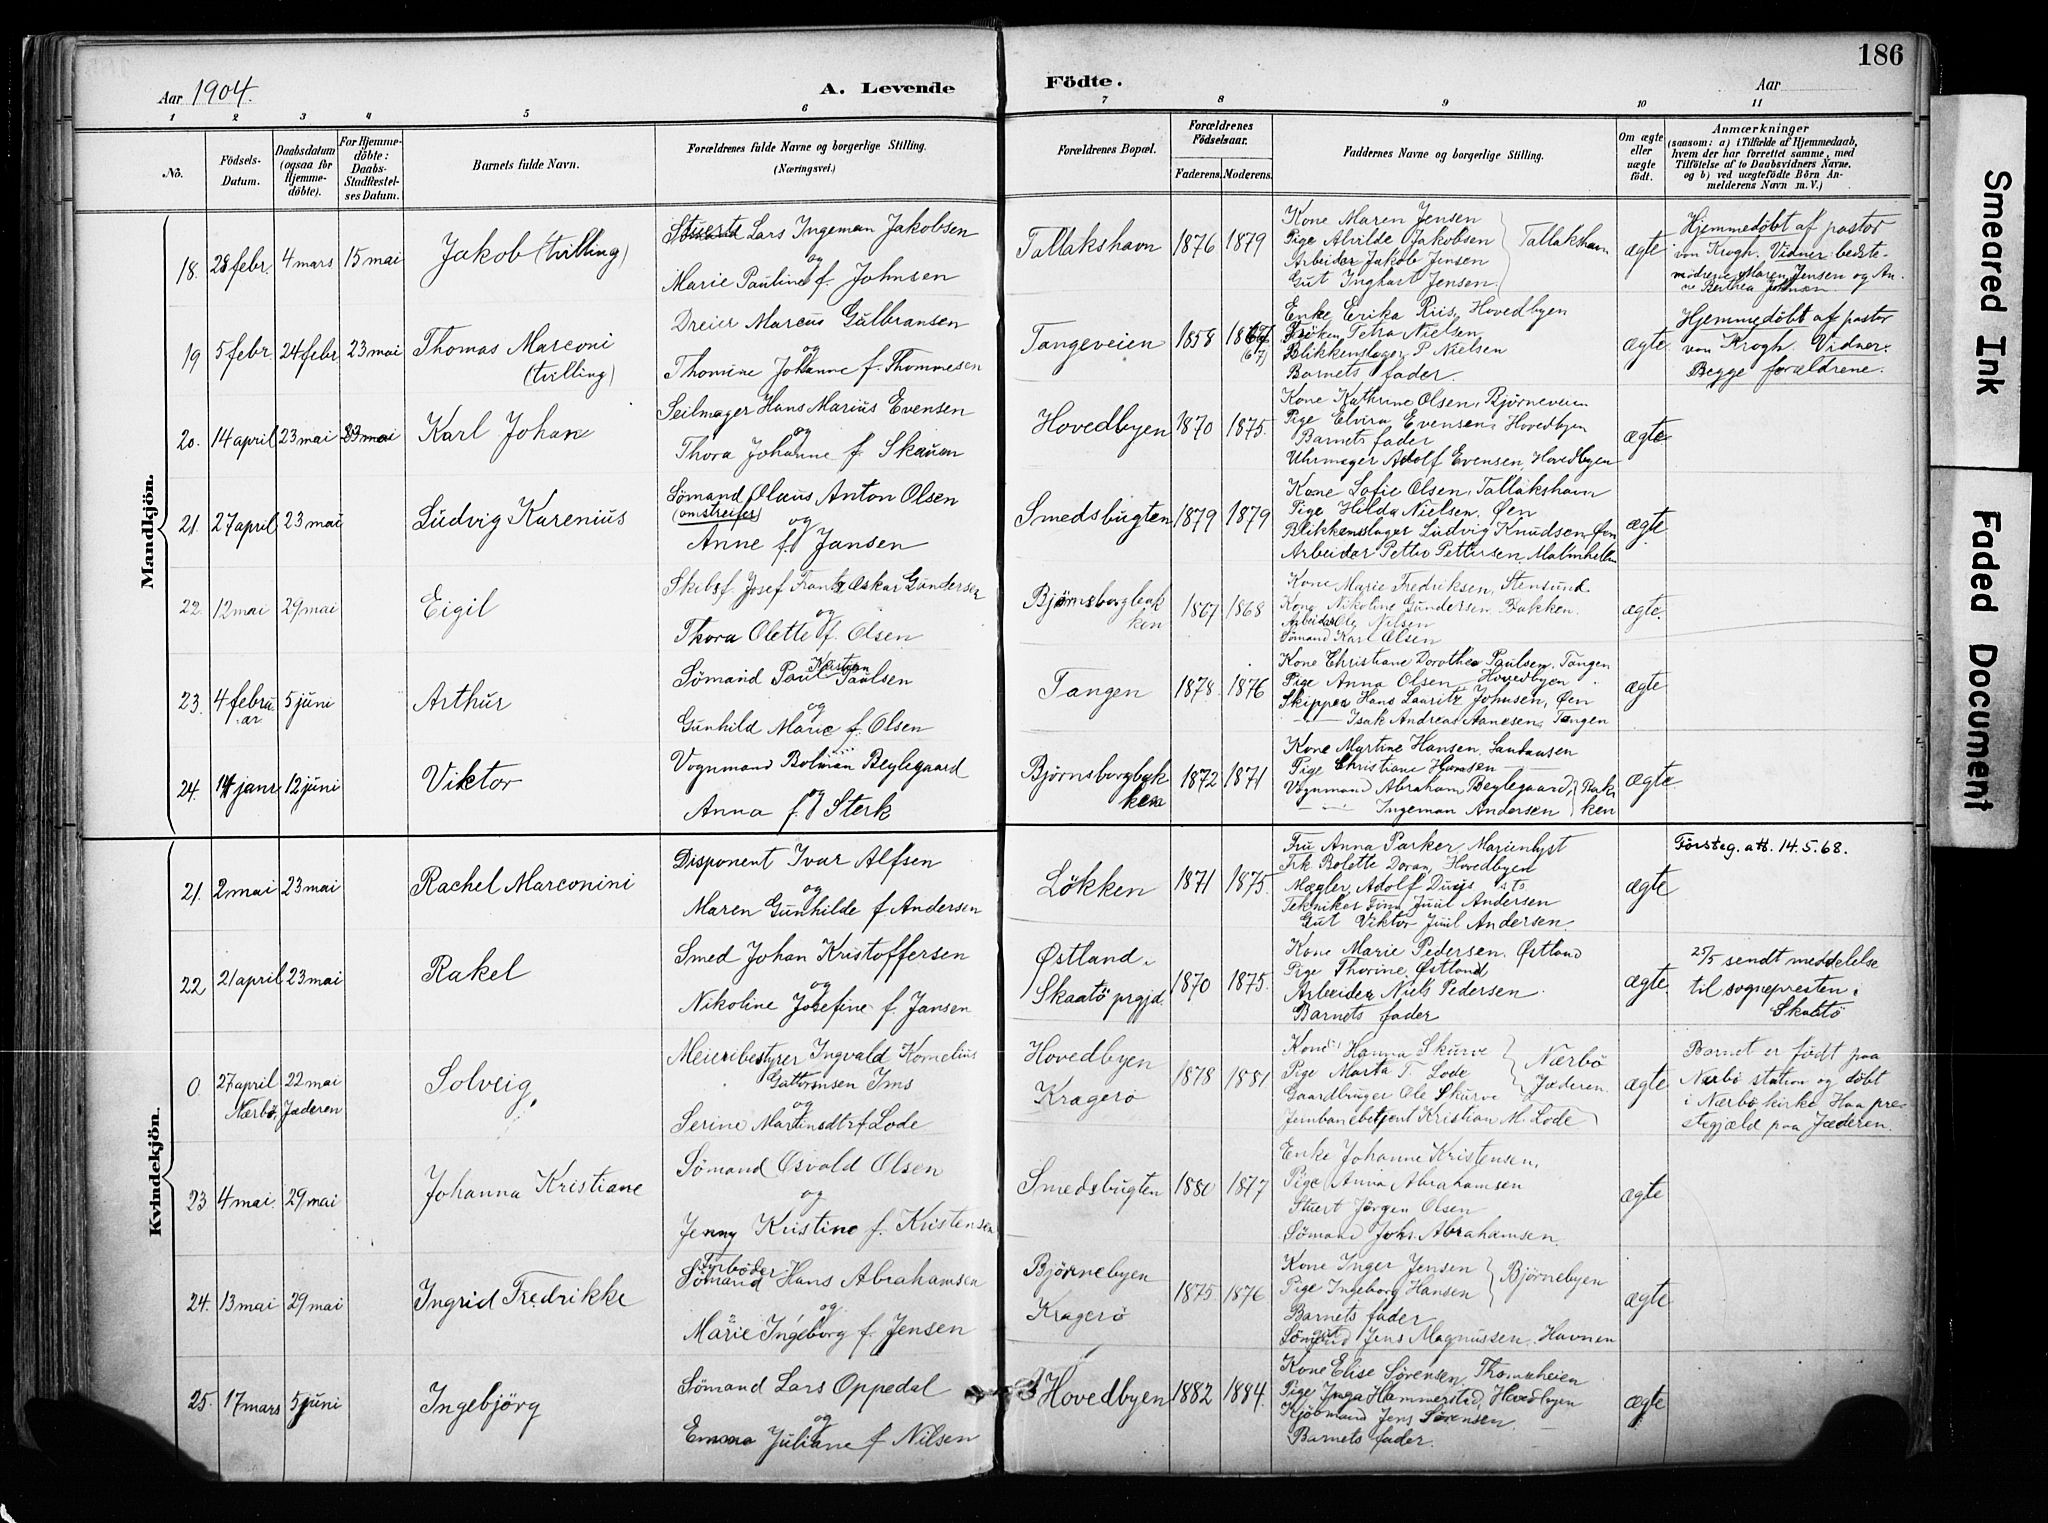 186
Aar 1904.
A. Levende
Födte.
Aar
1 2 3 4 5 6 7 8 9 10 11
No.
Födsels-Datum.
Daabsdatum (ogsaa for Hjemmedöbte).
For Hjemmedöbte: Daabs-Stadfæstelses Datum.
Barnets fulde Navn.
Forældrenes fulde Navne og borgerlige Stilling. (Næringsvei.)
Forældrenes Bopæl.
Forældrenes Födselsaar.
Faderens. Moderens.
Faddernes Navne og borgerlige Stilling.
Om ægte eller uægte födt.
Anmærkninger
(saasom: a) i Tilfælde af Hjemmedaab, hvem der har forrettet samme, med Tilföielse af to Daabsvidners Navne, og b) ved uægtefödte Börn Anmelderens Navn m. V.)
Mandkjön.
18. 28 febr. 4 mars 15 mai Jakob (tvilling)
Stuert Lars Ingeman Jakobsen
og
Marie Pauline f. Johnsen
Tallakshavn 1876 1879
Kone Maren Jensen
Pige Alvilde Jakobsen
Arbeider Jakob Jensen
Gut Inghart Jensen
Tallakshavn
ægte
Hjemmedøbt af pastor
von Krogh. Vidner: bedste-
mødrene Maren Jensen og An-
ne Berthea Johnsen.
19 5 febr 24 febr 23 mai Thomas Marconi
(tvilling)
Dreier Marcus Gulbransen
og
Thomine Johanne f. Thommesen
Tangeveien 1858
(67)
Enke Erika Riis, Hovedbyen
Frøken Petra Nielsen
Blikkenslager P Nielsen
Barnets fader.
ægte.
Hjemmedöbt af pastor
von Krogh. Vidner:
Begge forældrene.
20. 14 april 23 mai Karl Johan
Seilmager Hans Marius Evensen
og
Thora Johanne f. Skauen
Hovedbyen 1870 1875.
Kone Kathrine Olsen, Bjørneveien
Pige Elvira Evensen, Hovedbyen
Barnets fader
Uhrmager Adolf Evensen, Hovedbyen
ægte
21. 27 april 23 mai Ludvig Karenius
Sömand Olaus Anton Olsen
(omstreifer)
og
Anne f. Jansen
Smedsbugten 1879 1879
Kone Sofie Olsen, Tallakshavn
Pige Hilda Nielsen, Øen
Blikkenslager Ludvig Knudsen, Øen
Arbeider Petter Pettersen, Malmhellen
ægte.
22. 12 mai 29 mai Eigil
Skibsf. Josef Frantz Oskar Gundersen
og
Thora Olette f. Olsen
Bjørnsborgbak
ken
1867 1868
Kone Marie Fredriksen, Stensund
Kone Nikoline Gundersen Bakken.
Arbeider Ole Nilsen
Sömand Karl Olsen
ægte.
23. 4 febru-
ar
5 juni Arthur
Sömand Paul Kristian Paulsen
og
Gunhild Marie f. Olsen
Tangen 1878. 1876
Kone Christiane Dorothea Paulsen, Tangen
Pige Anna Olsen Hovedbyen
Skipper Hans Lauritz Johnsen, Øen
— Isak Andreas Aanesen, Tangen
ægte
24. 14 janr 12 juni Viktor
Vognmand Bolman Beylegaard
og
Anna f. Sterk
Bjørnsborgbak
ken
1872 1871
Kone Martine Hansen,
Pige Christiane Hansen — —
Vognmand Abraham Beylegaard,
— Ingeman Andersen
Bak-
ken
ægte
Kvindekjön.
21. 2 mai 23 mai Rachel Marconini
Disponent Ivar Alfsen
og
Maren Gunhilde f. Andersen
Lökken 1871 1875.
Fru Anna Parker, Marienlyst
Frk Bolette Doran, Hovedbyen
Mægler Adolf Duus
Tekniker Finn Juul Andersen
Gut Viktor Juul Andersen.
ægte
Førsteg. att. 14.5.68.
22 21 april 23 mai Rakel
Smed Johan Kristoffersen
og
Nikoline Josefine f. Jansen
Østland i
Skaatö prgjd.
1870 1875.
Kone Marie Pedersen, Østland
Pige Thorine Østland
Arbeider Niels Pedersen
Barnets fader
ægte.
25/5 sendt meddelelse
til sognepresten i
Skaatö
0. 27 april 22 mai
Nærbö, Jæderen
Solveig,
Meieribestyrer Ingvald Kornelius
Guttormsen Ims
og
Serine Martinsdtr f Lode
Hovedbyen
Kragerö
1878 1881
Kone Hanna Skurve
Pige Marta T. Lode
Gaardbruger Ole Skurve
Jernbanebetjent Kristian M. Lode
Nærbö
Jæderen.
ægte
Barnet er födt paa
Nærbö station og döbt
i Nærbö kirke Haa pre-
stegjæld paa Jæderen.
23 4 mai. 29 mai Johanna Kristiane
Sömand Osvald Olsen
og
Jenny Kristine f. Kristensen
Smedsbugten 1880 1877
Enke Johanne Kristensen,
Pige Anna Abrahamsen
Stuert Jörgen Olsen
Sömand Johs. Abrahamsen.
ægte
24. 13 mai 29 mai Ingrid Fredrikke
Fyrböder
Sömand Hans Abrahamsen
og
Marie Ingeborg f. Jensen
Björnebyen
Kragerö
1875. 1876
Kone Inger Jensen
Pige Ingeborg Hansen
Björnebyen
Barnets fader
Sömand Jens Magnussen, Havnen
ægte
25. 17 mars 5 juni Ingebjörg
Sömand Lars Oppedal
og
Emma Juliane f. Nilsen
Hovedbyen 1882 1884.
Kone Elise Sörensen, Thomesheien
Pige Inga Hammerstad, Hovedbyen
Kjöbmand Jens Sörensen
Barnets fader.
ægte
Smeared Ink
Faded Document